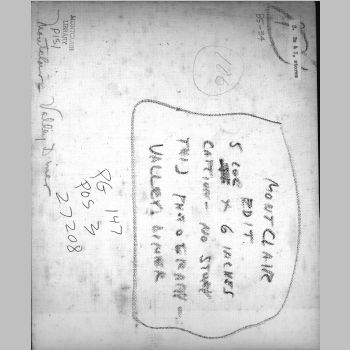 MONTCLAIR
EDIT.
5 COL X 6 INCHES
CAPTION - NO STORY
THIS PHOTOGRAPH
VALLEY DINER
PG 147
POS 3
27208
116
55-34
MONTCLAIR
LIBRARY
Valley Diner